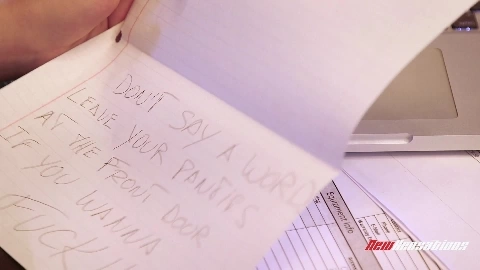 DON'T SAY A WORD
LEAVE YOUR PANTIES
AT THE FRONT DOOR
IF YOU WANNA
FUCK
Equipment Info
New Sensations